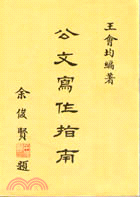 王會均編著
公文寫作指南
余俊賢題